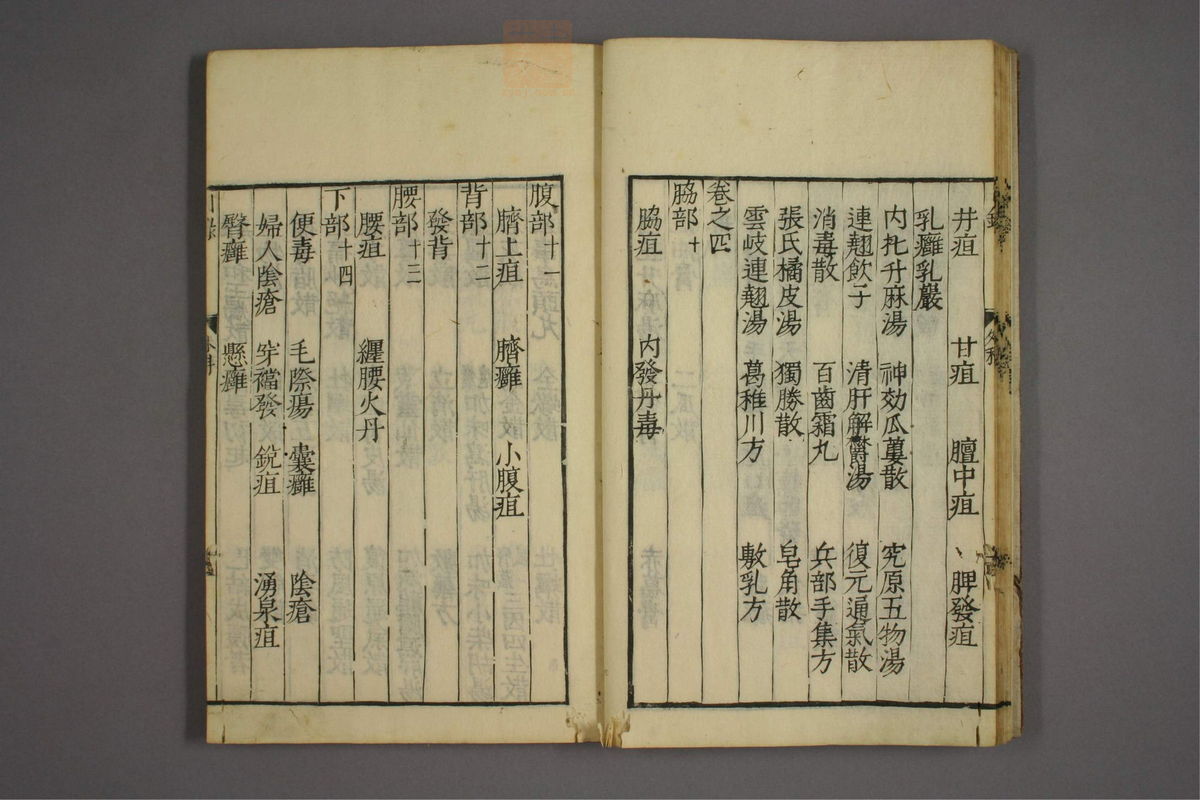 井疽 甘疽 膻中疽 脾發疽
乳癰乳巖
内托升麻湯 神効瓜蔞散 究原五物湯
連翹飲子 清肝解鬱湯 復元通氣散
消毒散 百齒霜丸 兵部手集方
張氏橘皮湯 獨勝散 皂角散
雲岐連翹湯 葛稚川方 敷乳方
卷之四
脇部十
脇疽 内發丹毒
腹部十一
臍上疽 臍癰 小腹疽
背部十二
發背
腰部十三
腰疽 纏腰火丹
下部十四
便毒 毛際瘍 囊癰 陰瘡
婦人陰瘡 穿襠發 銳疽 湧泉疽
臀癰 懸癰